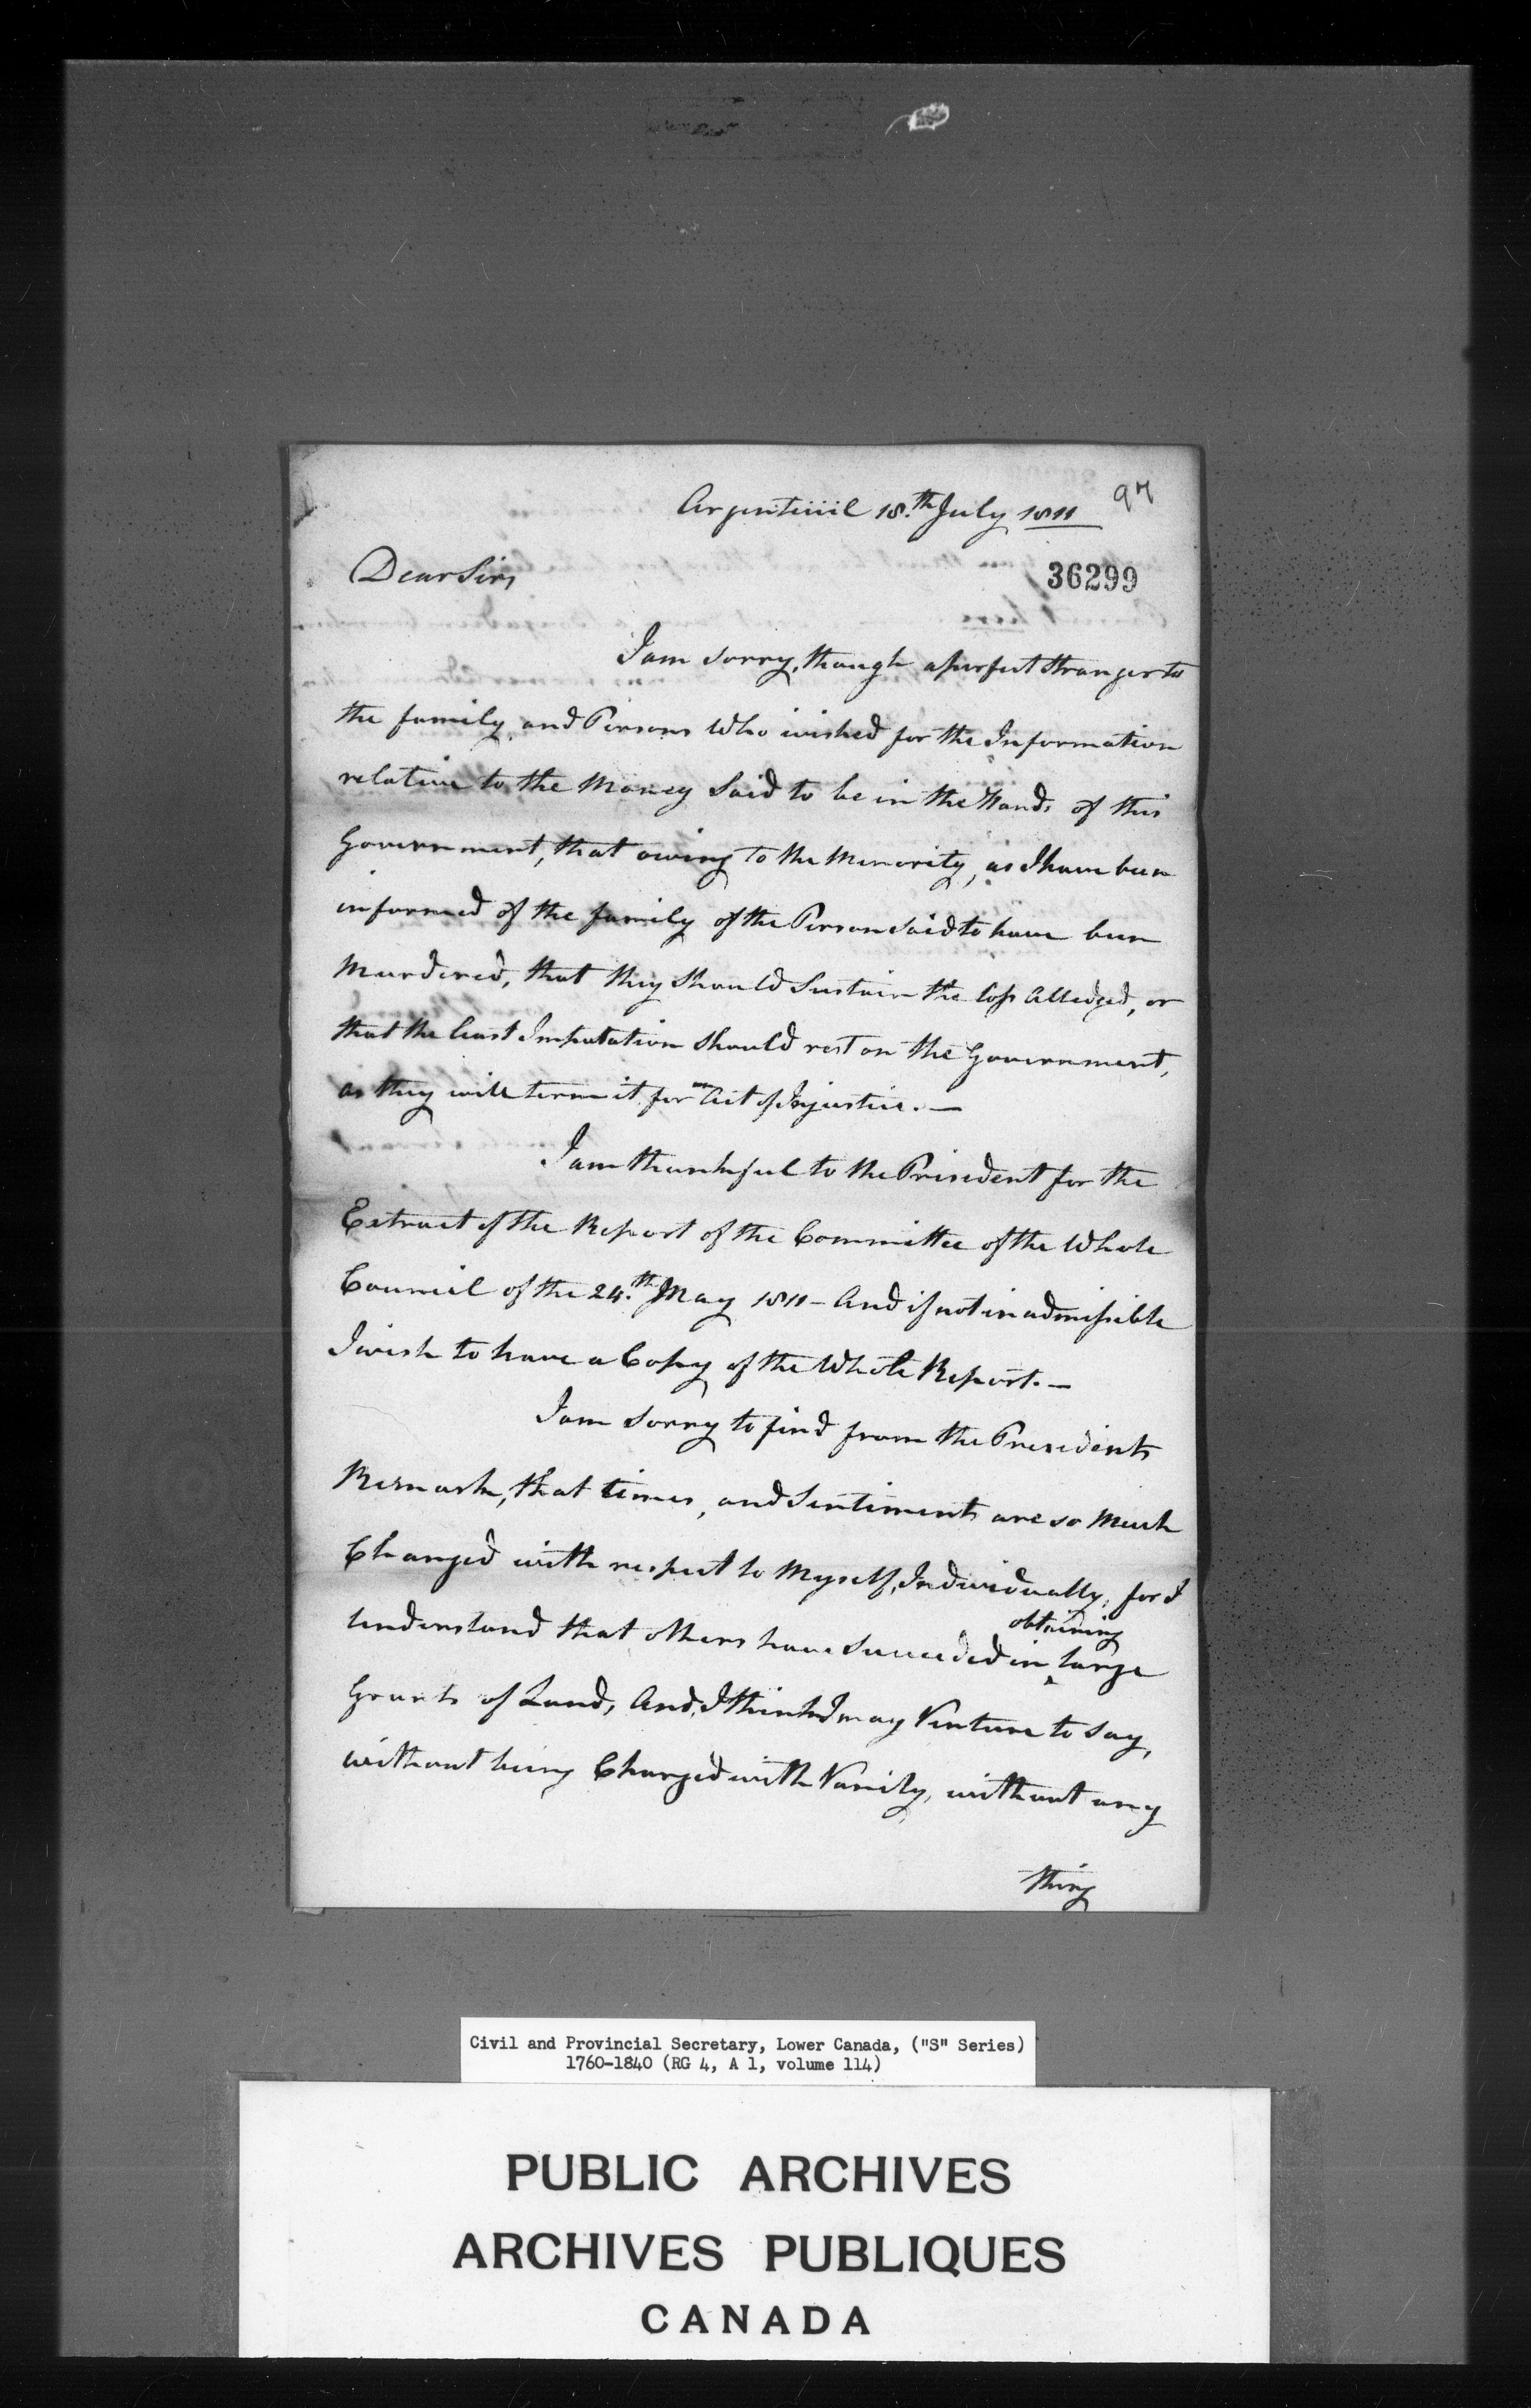 Argenteuil 18.th July 1811
97
Dear Sir,
36299
I am sorry, though a perfect Stranger to
the family and Persons Who wished for the Information
relative to the Money Said to be in the Hands of this
Government, that owing to the Minority, as I have been
informed of the family of the Person Said to have been
Murdered, that they Should Sustain the loss Alledged, or
that the least Imputation Should rest on the Government,
as they will term it for an Act of Injustice. —
I am thankful to the President for the
Extract of the Report of the Committee of the Whole
Council of the 24.th May 1811 – And if not inadmissible
I wish to have a Copy of the Whole Report. —
I am Sorry to find from the Presidents
Remark, that times, and Sentiments are so Much
Changed with respect to Myself, Individually, for I
Understand that others have Succeeded in obtaining large
Grants of Land, And, I think I may Venture to Say,
without being Charged with Vanity, without any
thing
Civil and Provincial Secretary, Lower Canada, ("S" Series)
1760-1840 (RG 4, A 1, volume 114)
PUBLIC ARCHIVES
ARCHIVES PUBLIQUES
CANADA